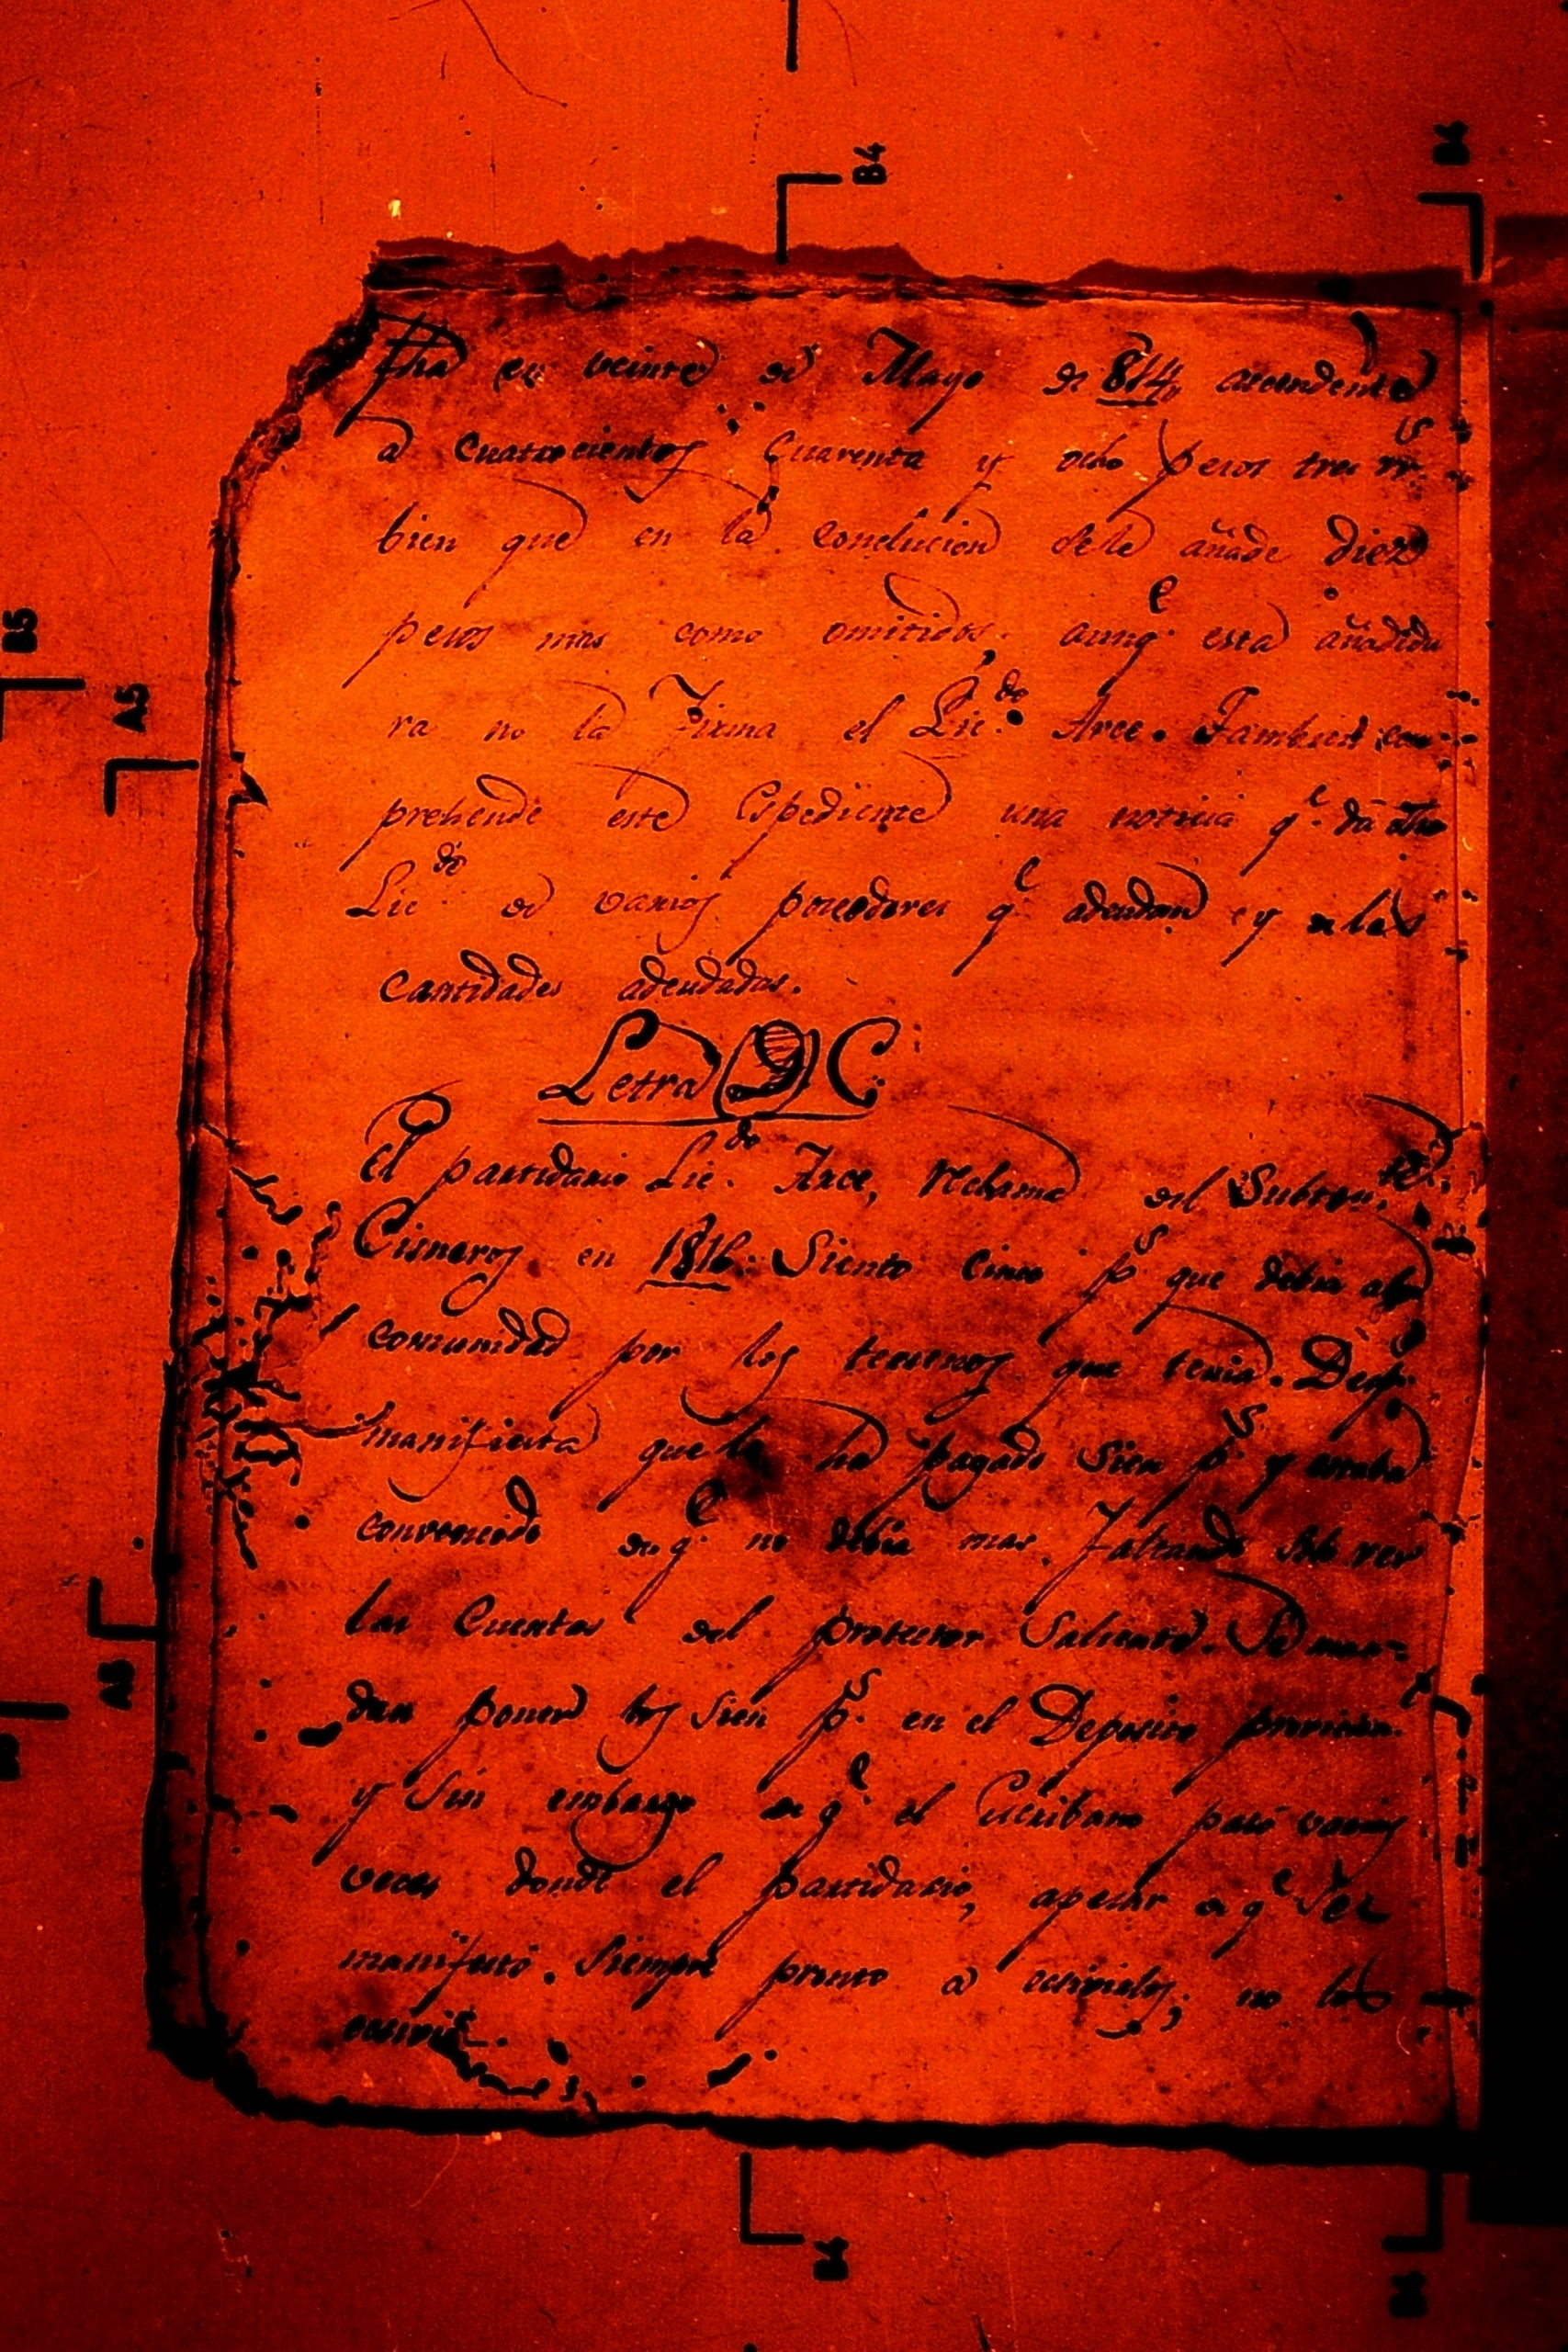 Fha en veinte de Mayo de 814, asendente
a cuatrocientos cuarenta y ocho pesos tres rrs.
bien que en la conclucion sele añade diez
pesos mas como omitidos; aunqe. esta añadidu
ra no la Firma el Licdo. Arce. Tambien com-
prehende este Espediente una noticia qe. dá otro
Licdo. de varios poceedores qe. adeudan y de las
cantidades adeudadas.
Letra C.
El partidario Licdo. Arce, reclama del Subten.te
Cisneros en 1816. Siento cinco ps. que debia a la
comunidad por los terrenos que tenia. Desps.
manifiesta que le ha pagado Sien ps. y estaba
convencido de qe. no debia mas. Faltando solo ver
las Cuentas del protector Saliente. Se man-
dan poner los sien ps. en el Deposito
y Sin embargo de qe. el Escribano pasó varias
veces donde el partidario, apesar de qe.
manifestó siempre pronto a ; no los
B4
B4
B5
A5
A5
B4